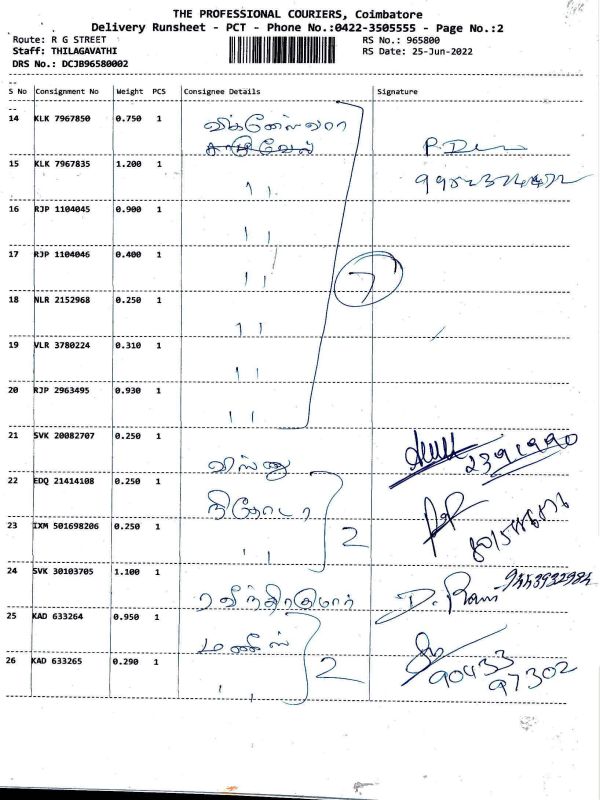 THE PROFESSIONAL COURIERS, Coimbatore
Delivery Runsheet - PCT - Phone No.:0422-3505555 - Page No.:2
Route: R G STREET
RS No.: 965800
Staff: THILAGAVATHI
RS Date: 25-Jun-2022
DRS No.: DCJB96580002
S No Consignment No Weight PCS Consignee Details Signature
14 KLK 7967850 0.750 1
15 KLK 7967835 1.200 1 11
16 RJP 1104045 0.900 1 11
17 RJP 1104046 0.400 1 11
7
18 NLR 2152968 0.250 1 11
19 VLR 3780224 0.310 1 11
20 RJP 2963495 0.930 1 11
21 SVK 20082707 0.250 1 விஸ்ணு
2391990
22 EDQ 21414108 0.250 1
23 IXM 501698206 0.250 1 11 2
24 SVK 30103705 1.100 1 ரவீந்திரகுமார் D. Rami 9443932984
25 KAD 633264 0.950 1
26 KAD 633265 0.290 1 11 2 90433
97302